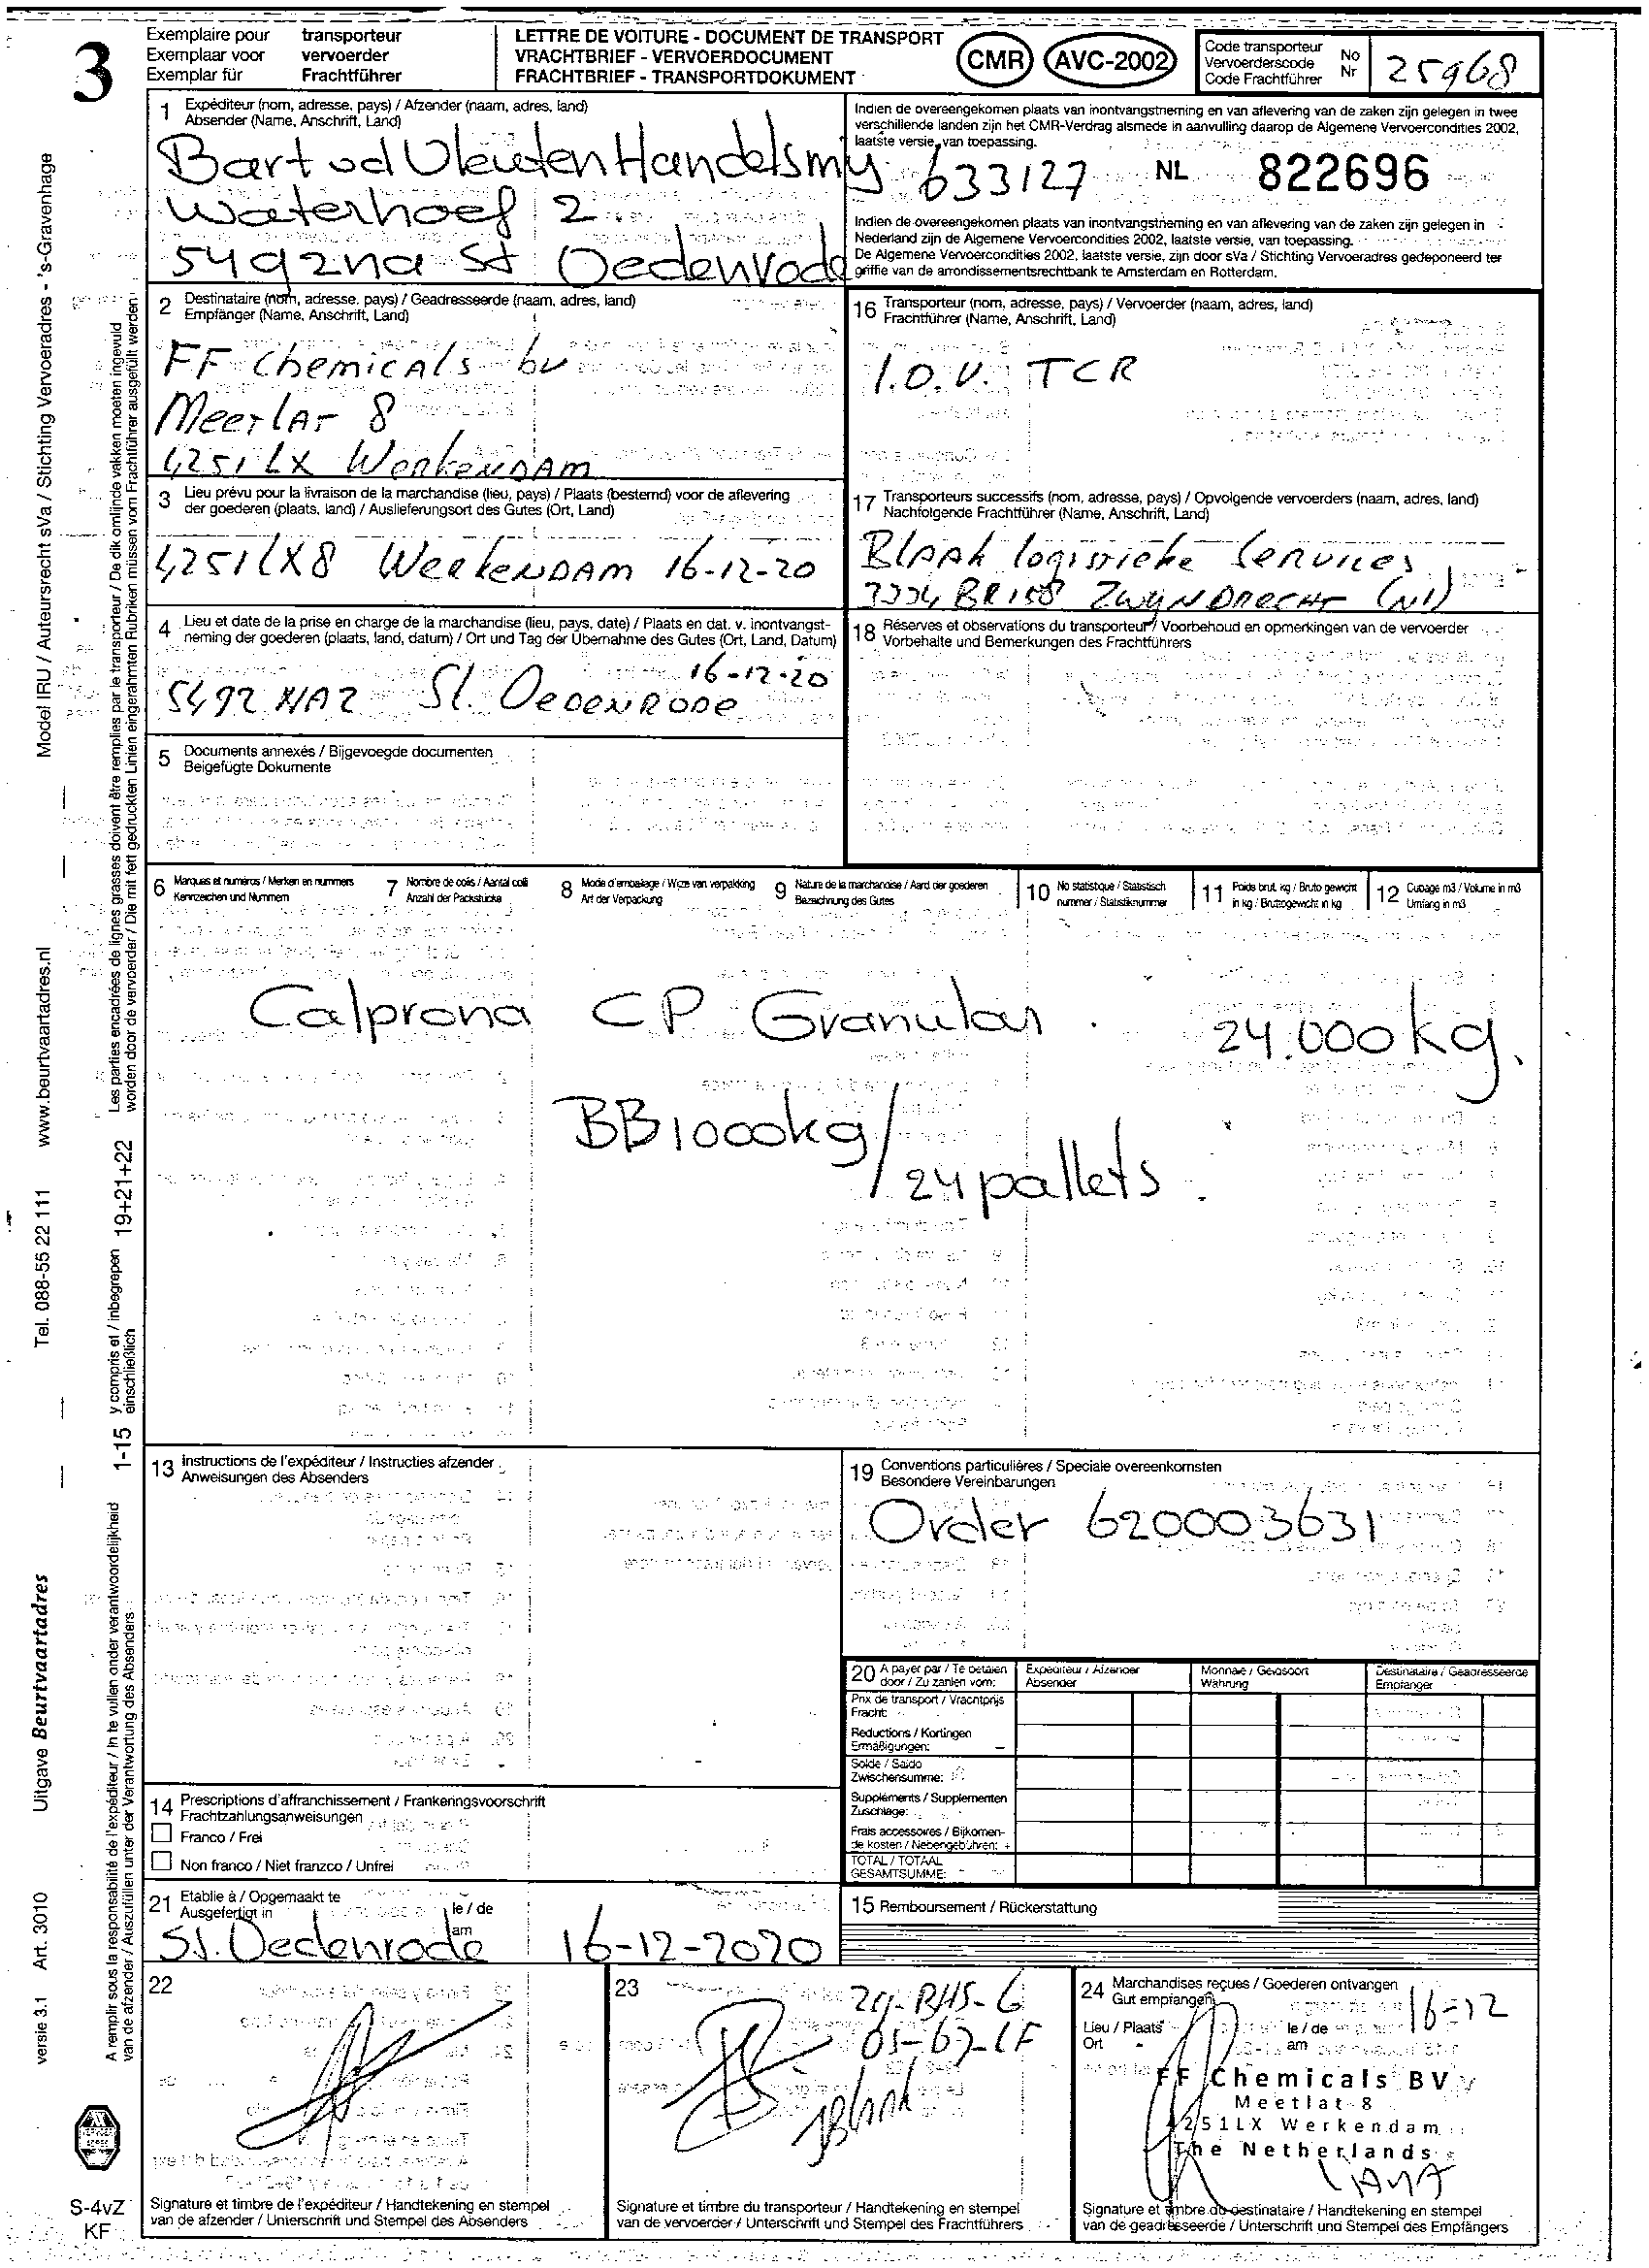 3
Exemplaire pour transporteur
Exemplaar voor vervoerder
Exemplar für Frachtführer
LETTRE DE VOITURE - DOCUMENT DE TRANSPORT
VRACHTBRIEF - VERVOERDOCUMENT
FRACHTBRIEF - TRANSPORTDOKUMENT
CMR AVC-2002
Code transporteur
Vervoerderscode
Code Frachtführer
No
Nr
25968
1 Expéditeur (nom, adresse, pays) / Afzender (naam, adres, land)
Absender (Name, Anschrift, Land)
Bart vd Vleuten Handelsmy
Waterhoef 2
5492na St Oedenrode
Indien de overeengekomen plaats van inontvangstneming en van aflevering van de zaken zijn gelegen in twee
verschillende landen zijn het CMR-Verdrag alsmede in aanvulling daarop de Algemene Vervoercondities 2002,
laatste versie, van toepassing.
633127 NL 822696
Indien de overeengekomen plaats van inontvangstneming en van aflevering van de zaken zijn gelegen in
Nederland zijn de Algemene Vervoercondities 2002, laatste versie, van toepassing.
De Algemene Vervoercondities 2002, laatste versie, zijn door sVa / Stichting Vervoeradres gedeponeerd ter
griffie van de arrondissementsrechtbank te Amsterdam en Rotterdam.
2 Destinataire (nom, adresse, pays) / Geadresseerde (naam, adres, land)
Empfänger (Name, Anschrift, Land)
FF Chemicals bv
Meerlar 8
4251 LX Werkendam
16 Transporteur (nom, adresse, pays) / Vervoerder (naam, adres, land)
Frachtführer (Name, Anschrift, Land)
I.O.V. TCR
3 Lieu prévu pour la livraison de la marchandise (lieu, pays) / Plaats (bestemd) voor de aflevering
der goederen (plaats, land) / Auslieferungsort des Gutes (Ort, Land)
4251LX8 Werkendam 16-12-20
17 Transporteurs successifs (nom, adresse, pays) / Opvolgende vervoerders (naam, adres, land)
Nachfolgende Frachtführer (Name, Anschrift, Land)
Blaak logistieke Services
3334 BR158 Zwijndrecht (Nl)
4 Lieu et date de la prise en charge de la marchandise (lieu, pays, date) / Plaats en dat. v. inontvangst-
neming der goederen (plaats, land, datum) / Ort und Tag der Übernahme des Gutes (Ort, Land, Datum)
16-12-20
5492 NA2 St. Oedenrode
18 Réserves et observations du transporteur / Voorbehoud en opmerkingen van de vervoerder
Vorbehalte und Bemerkungen des Frachtführers
5 Documents annexés / Bijgevoegde documenten
Beigefügte Dokumente
6 Marques et numéros / Merken en nummers
Kennzeichen und Nummern
7 Nombre de colis / Aantal colli
Anzahl der Packstücke
8 Mode d'emballage / Wijze van verpakking
Art der Verpackung
9 Nature de la marchandise / Aard der goederen
Bezeichnung des Gutes
10 No statistique / Statistisch
nummer / Statistiknummer
11 Poids brut, kg / Bruto gewicht
in kg / Bruttogewicht in kg
12 Cubage m3 / Volume in m3
Umfang in m3
Calprona CP Granular 24.000 kg.
BB1000kg/24 pallets.
13 Instructions de l'expéditeur / Instructies afzender
Anweisungen des Absenders
19 Conventions particulières / Speciale overeenkomsten
Besondere Vereinbarungen
Order 620003631
20 A payer par / Te betalen
door / Zu zahlen vom:
Expéditeur / Afzender
Absender
Monnaie / Geldsoort
Währung
Destinataire / Geadresseerde
Empfänger
Prix de transport / Vrachtprijs
Fracht:
Réductions / Kortingen
Ermäßigungen: –
Solde / Saldo
Zwischensumme:
Suppléments / Supplementen
Zuschläge:
Frais accessoires / Bijkomen-
de kosten / Nebengebühren: +
TOTAL / TOTAAL
GESAMTSUMME:
14 Prescriptions d'affranchissement / Frankeringsvoorschrift
Frachtzahlungsanweisungen
Franco / Frei
Non franco / Niet franzco / Unfrei
21 Etablie à / Opgemaakt te
Ausgefertigt in
le / de
am
St. Oedenrode 16-12-2020
15 Remboursement / Rückerstattung
22
Signature et timbre de l'expéditeur / Handtekening en stempel
van de afzender / Unterschrift und Stempel des Absenders
23
29-BHS-6
05-67-LF
Blaak
Signature et timbre du transporteur / Handtekening en stempel
van de vervoerder / Unterschrift und Stempel des Frachtführers
24 Marchandises reçues / Goederen ontvangen
Gut empfangen
16-12
Lieu / Plaats
Ort
le / de
am
FF Chemicals BV
Meetlat 8
4251LX Werkendam
The Netherlands
Signature et timbre du destinataire / Handtekening en stempel
van de geadresseerde / Unterschrift und Stempel des Empfängers
Model IRU / Auteursrecht sVa / Stichting Vervoeradres - 's-Gravenhage
www.beurtvaartadres.nl
Tel. 088-55 22 111
Uitgave Beurtvaartadres
Art. 3010
versie 3.1
Les parties encadrées de lignes grasses doivent être remplies par le transporteur / De dik omlijnde vakken moeten ingevuld
worden door de vervoerder / Die mit fett gedruckten Linien eingerahmten Rubriken müssen vom Frachtführer ausgefüllt werden
19+21+22
y compris et / inbegrepen
einschließlich
1-15
A remplir sous la responsabilité de l'expéditeur / In te vullen onder verantwoordelijkheid
van de afzender / Auszufüllen unter der Verantwortung des Absenders
S-4vZ
KF